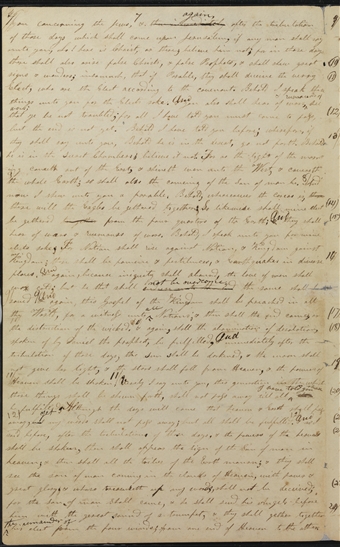 again,
concerning the Jews, after the tribulation
of those days which shall come upon Jerusalem, if any man shall say
unto you, Lo here is Christ, or there, believe him not; for in those days
there shall also arise false Christs, & false Prophets, & shall shew great
signs & wonders, insomuch, that if Possible, they shall deceive the very
Elect, who are the Elect according to the covenant. Behold I speak these
things unto you for the Elect's sake. And you also shall hear of wars,
that ye be not troubled; for all I have told you must come to pass,
but the end is not yet. Behold I have told you before, wherefore, if
they shall say unto you, Behold he is in the desert, go not forth, Behold
he is in the Secret Chambers, believe it not. For as the light of the morn
cometh out of the East, & shineth even unto the West, & covereth
the whole Earth; so shall also the coming of the Son of man be. And
now I shew unto you a parable, Behold, wheresoever the carcass is, there
will the Eagles be gathered together; So likewise shall
be gathered from the four quarters of the Earth; And they shall
hear of wars & rumours of wars. Behold I speak unto you for mine
elects sake; For Nation shall rise against Nation, & Kingdom against
Kingdom; there shall be famine & pestilences, & earthquakes in divers
places, & again, because iniquity shall abound, the love of men shall
wax cold; but he that shall not be overcome, the same shall be
saved. And again this gospel of the Kingdom shall be preached in all
the World, for a witness unto all Nations, & then shall the end come, or
the destruction of the wicked; & again, shall the abomination of desolation,
spoken of by Daniel the prophet, be fulfilled. And immediately after the
tribulation of those days, the sun shall be darkened, & the moon shall
not give her light, & the stars shall fall from Heaven, & the powers of
Heaven shall be shaken; Verily I say unto you, this generation, in which
these things shall be shewn forth, shall not pass away till all
be fulfilled. Although the days will come that Heaven & Earth shall pass
away, yet my word shall not pass away, but all shall be fulfilled. And
as I said before, after the tribulation of those days, & the powers of the heavens
shall be shaken, then shall appear the sign of the Son of man in
heaven; & then shall all the tribes of the Earth mourn; & they shall
see the son of man coming in the clouds of Heaven, with power &
great glory; & whoso treasureth up my words, shall not be deceived;
for the Son of man shall come, & he shall send his Angels before
him with the great sound of a trumpet, & they shall gather together
the remainder of
his elect from the four winds; from one end of Heaven to the other